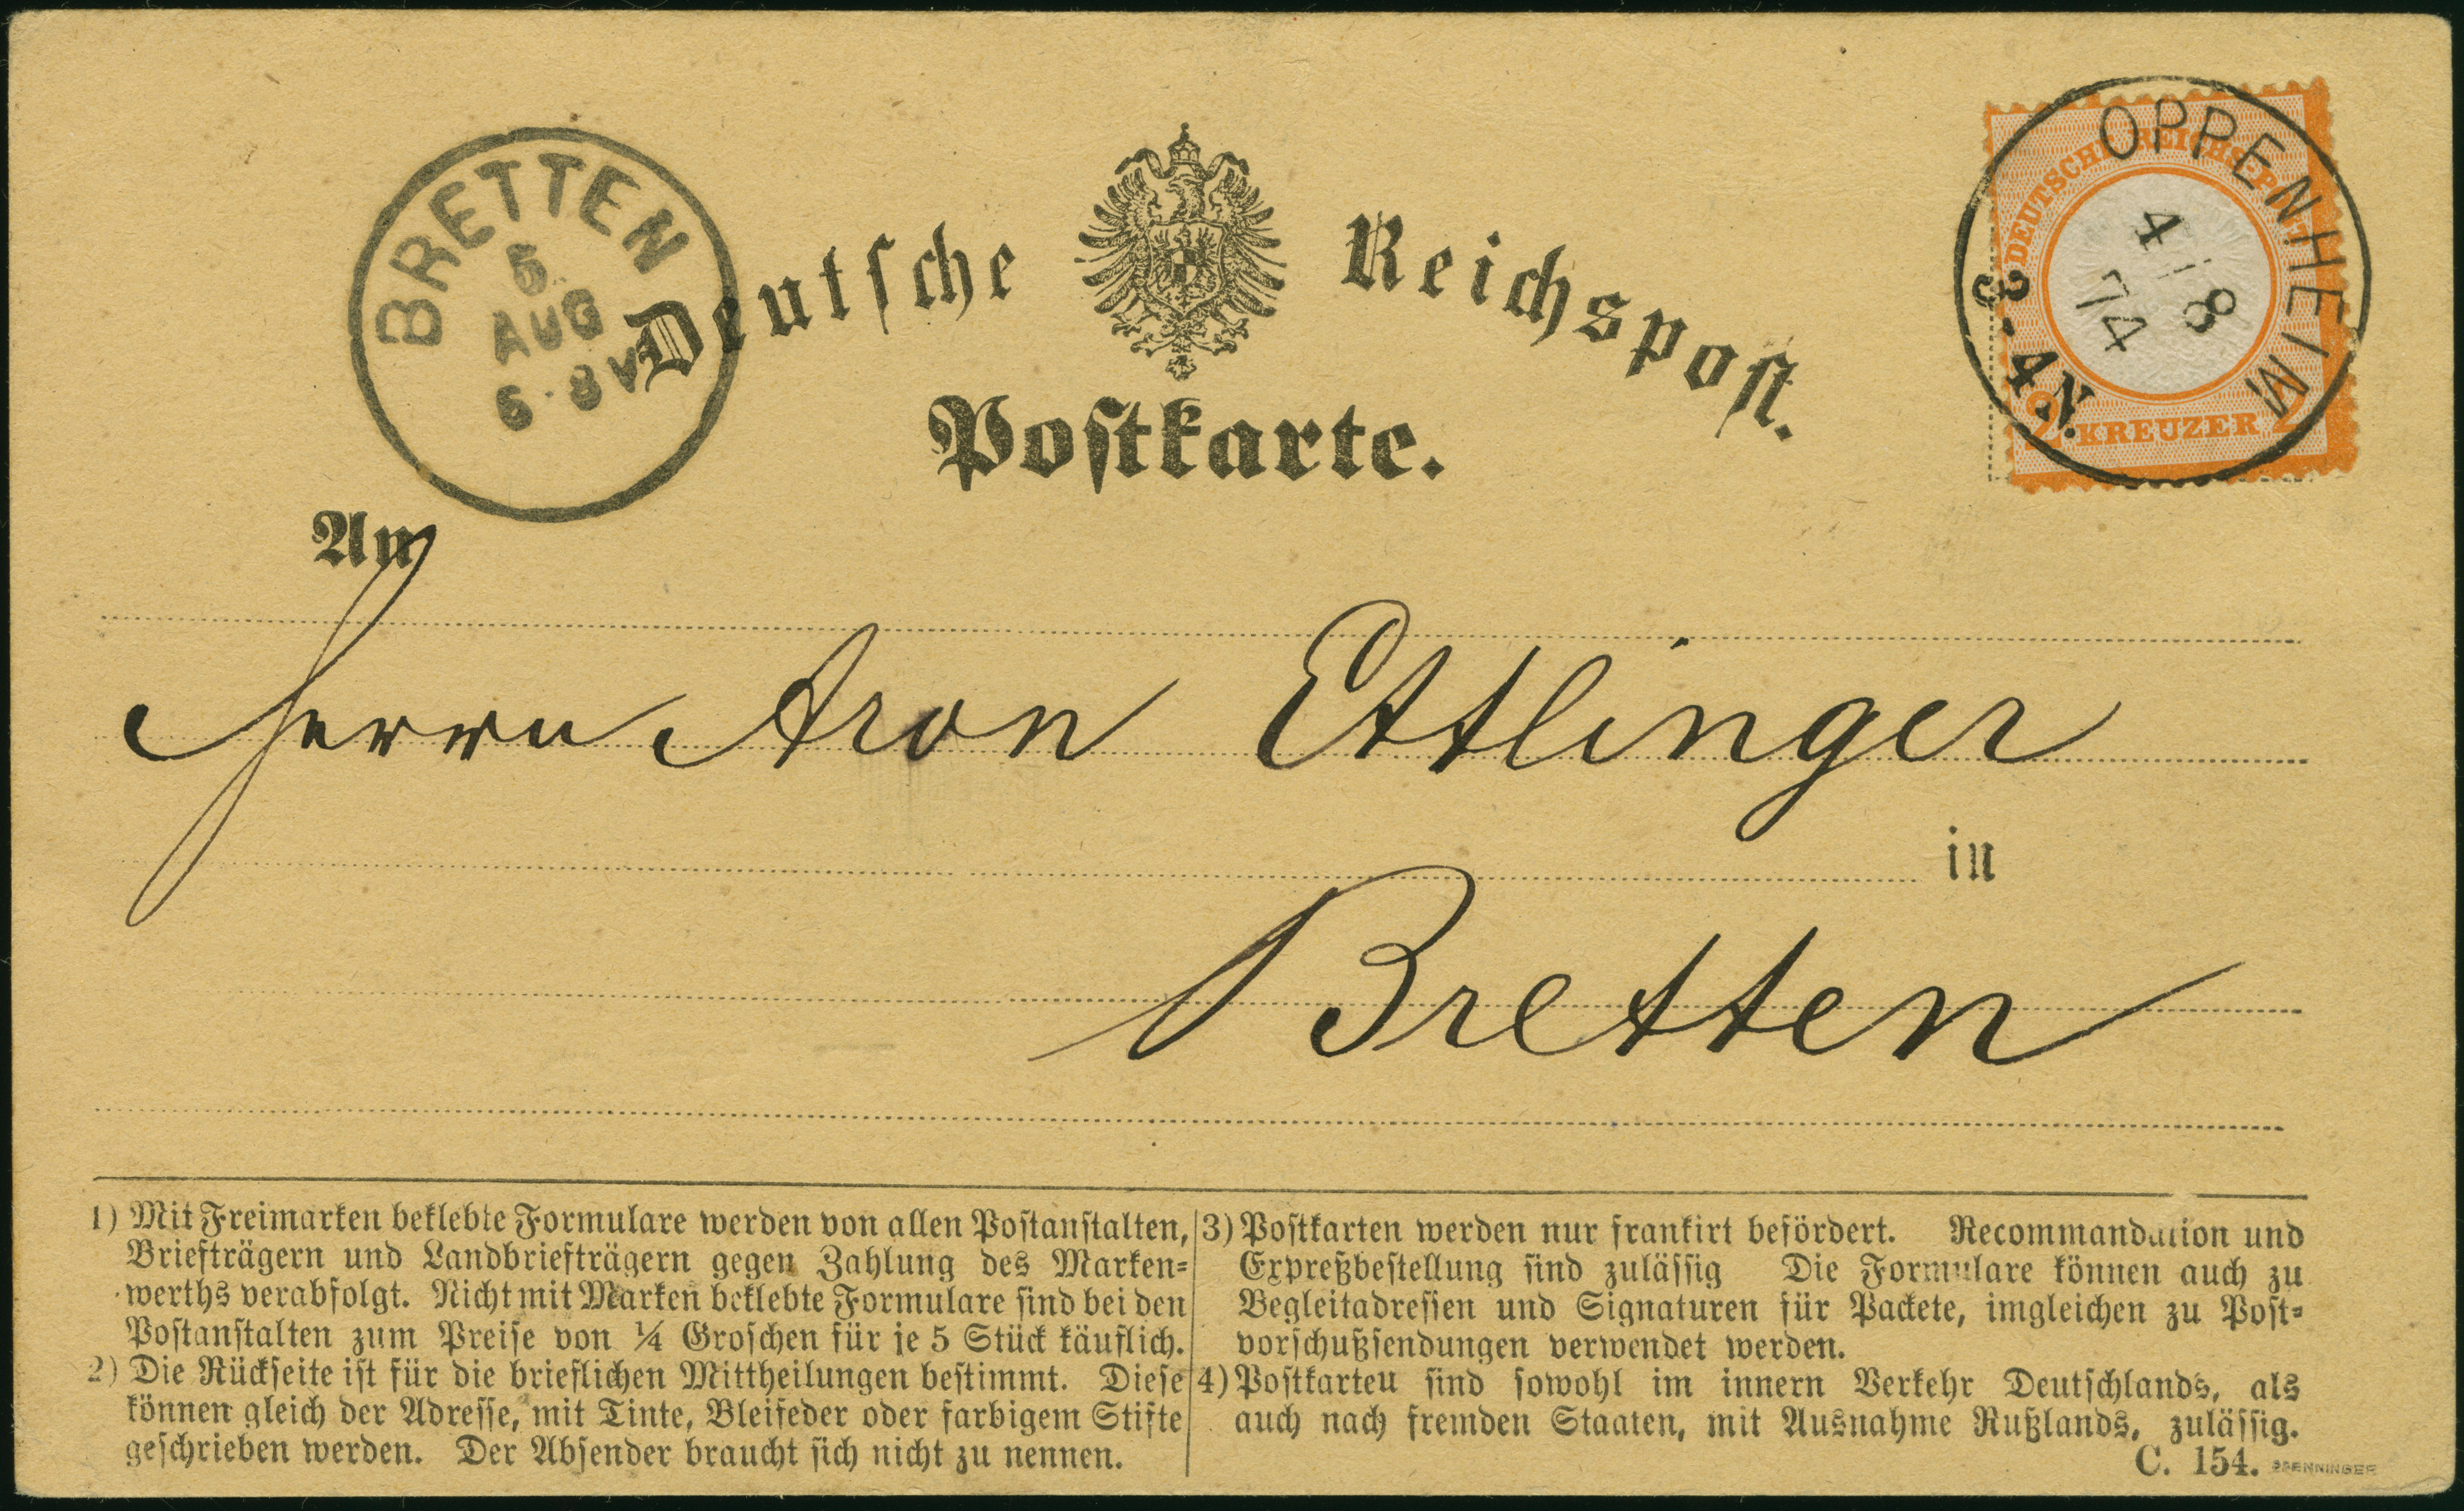 BRETTEN
5.
AUG
6-8V
Deutsche Reichspost.
Postkarte.
DEUTSCHE REICHS-POST
2 KREUZER 2
OPPENHEIM
4 8
74
3-4N.
An
Herrn Aron Ettlinger
in
Bretten
1) Mit Freimarken beklebte Formulare werden von allen Postanstalten,
Briefträgern und Landbriefträgern gegen Zahlung des Marken-
werths verabfolgt. Nicht mit Marken beklebte Formulare sind bei den
Postanstalten zum Preise von ¼ Groschen für je 5 Stück käuflich.
2) Die Rückseite ist für die brieflichen Mittheilungen bestimmt. Diese
können gleich der Adresse, mit Tinte, Bleifeder oder farbigem Stifte
geschrieben werden. Der Absender braucht sich nicht zu nennen.
3) Postkarten werden nur frankirt befördert. Recommandation und
Expreßbestellung sind zulässig Die Formulare können auch zu
Begleitadressen und Signaturen für Packete, imgleichen zu Post-
vorschußsendungen verwendet werden.
4) Postkarten sind sowohl im innern Verkehr Deutschlands, als
auch nach fremden Staaten, mit Ausnahme Rußlands, zulässig.
C. 154.
PFENNINGER